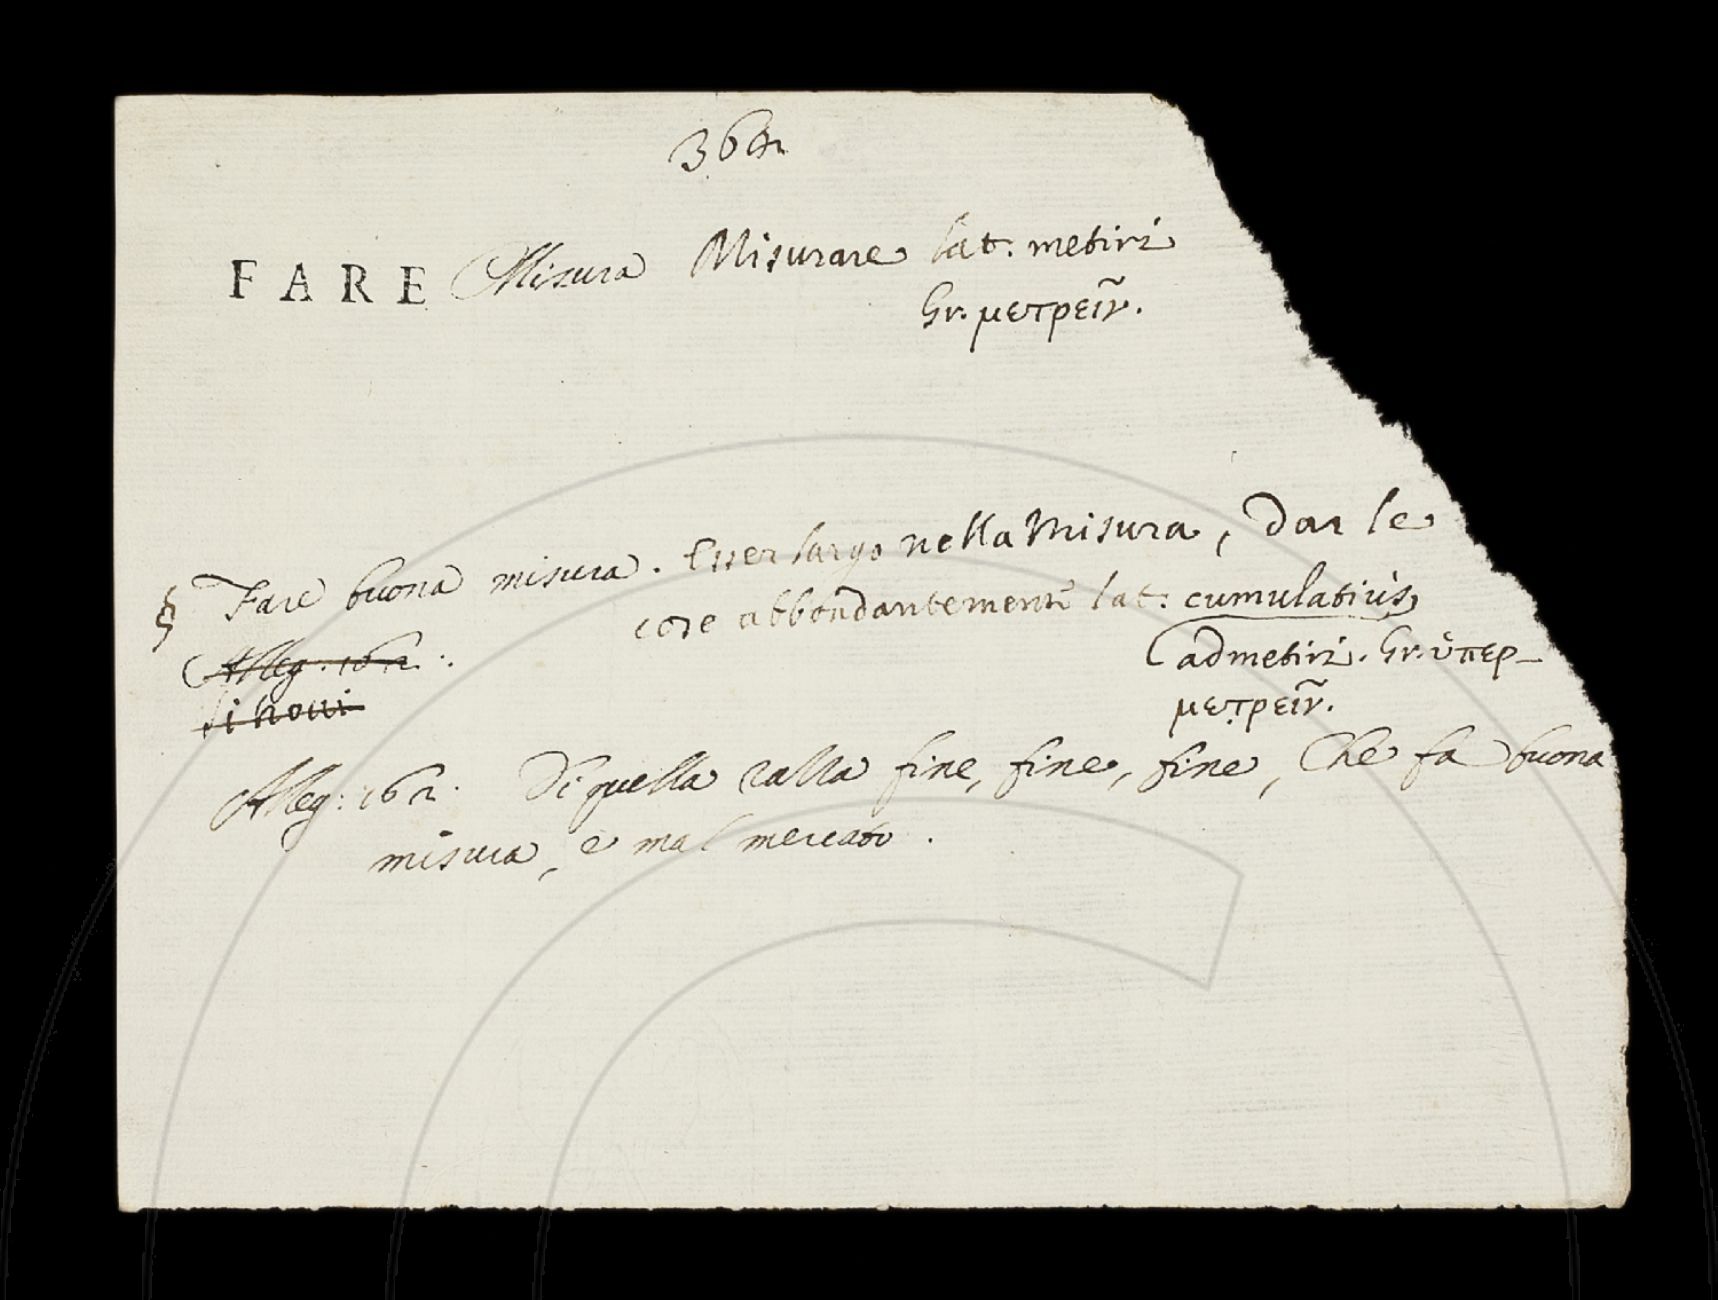 FARE Misura Misurare lat: metiri
Gr. μετρεῖν.
§ Fare buona misura. Esser largo nella Misura, Dar le
cose abbondantemente lat: cumulatius
admetiri. Gr. ὑπερ-
Alleg: 162.
μετρεῖν.
Alleg: 162. Di quella ralla fine, fine, fine, Che fa buona
misura, e mal mercato.